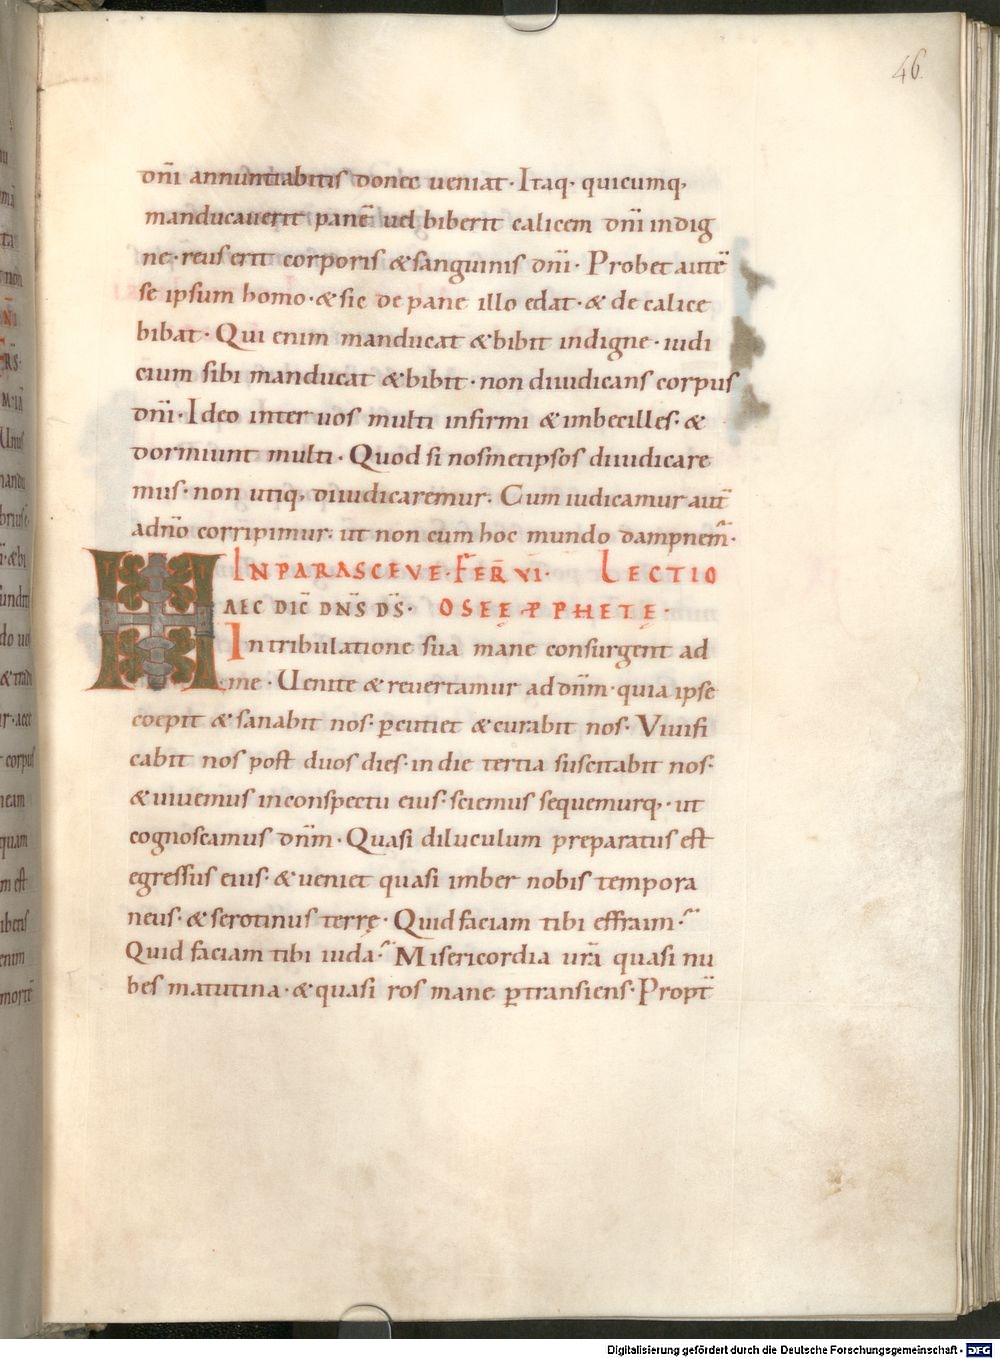 46
dn̄i annuntiabitis donec ueniat· Itaq; quicumq;
manducauerit panē uel biberit calicem dn̄i indig
ne· reus erit corporis &sanguinis dn̄i· Probet autē
se ipsum homo· &sic de pane illo edat· & de calice
bibat· Qui enim manducat &bibit indigne· iudi
cium sibi manducat &bibit· non diiudicans corpus
dn̄i· Ideo inter uos multi infirmi &imbecilles· &
dormiunt multi· Quod si nosmetipsos diiudicare
mus· non utiq; diiudicaremur· Cum iudicamur aut̄
adn̄o corripimur· ut non cum hoc mundo dampnem̄·
IN PARASCEVE· FER̄ VI· LECTIO
HAEC DIC̄ DN̄S D̄S· OSEĘ PPHETĘ·
In tribulatione sua mane consurgent ad
me· Uenite &reuertamur ad dn̄m· quia ipse
coepit &sanabit nos· ꝑcutiet &curabit nos· Viuifi
cabit nos post duos dies· in die tertia suscitabit nos·
&uiuemus inconspectu eius· sciemus sequemurq;· ut
cognoscamus dn̄m· Quasi diluculum preparatus est
egressus eius· &ueniet quasi imber nobis tempora
neus· &serotinus terrę· Quid faciam tibi effraim·
Quid faciam tibi iuda· Misericordia ur̄a quasi nu
bes matutina· &quasi ros mane ꝑtransiens· Propt̄
Digitalisierung gefördert durch die Deutsche Forschungsgemeinschaft - DFG